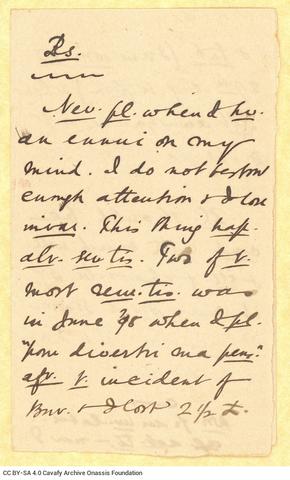 Rs.
Nev. pl. when I hv.
an ennui on my
mind. I do not bestow
enough attention & I lose
invar. This thing hap.
alr. sev. tis. Two of t.
most rem. tis. was
in June '98 when I pl.
"pour divertir ma pens."
aft. t. incident of
& I lost 2½ £.
CC BY-SA 4.0 Cavafy Archive Onassis Foundation